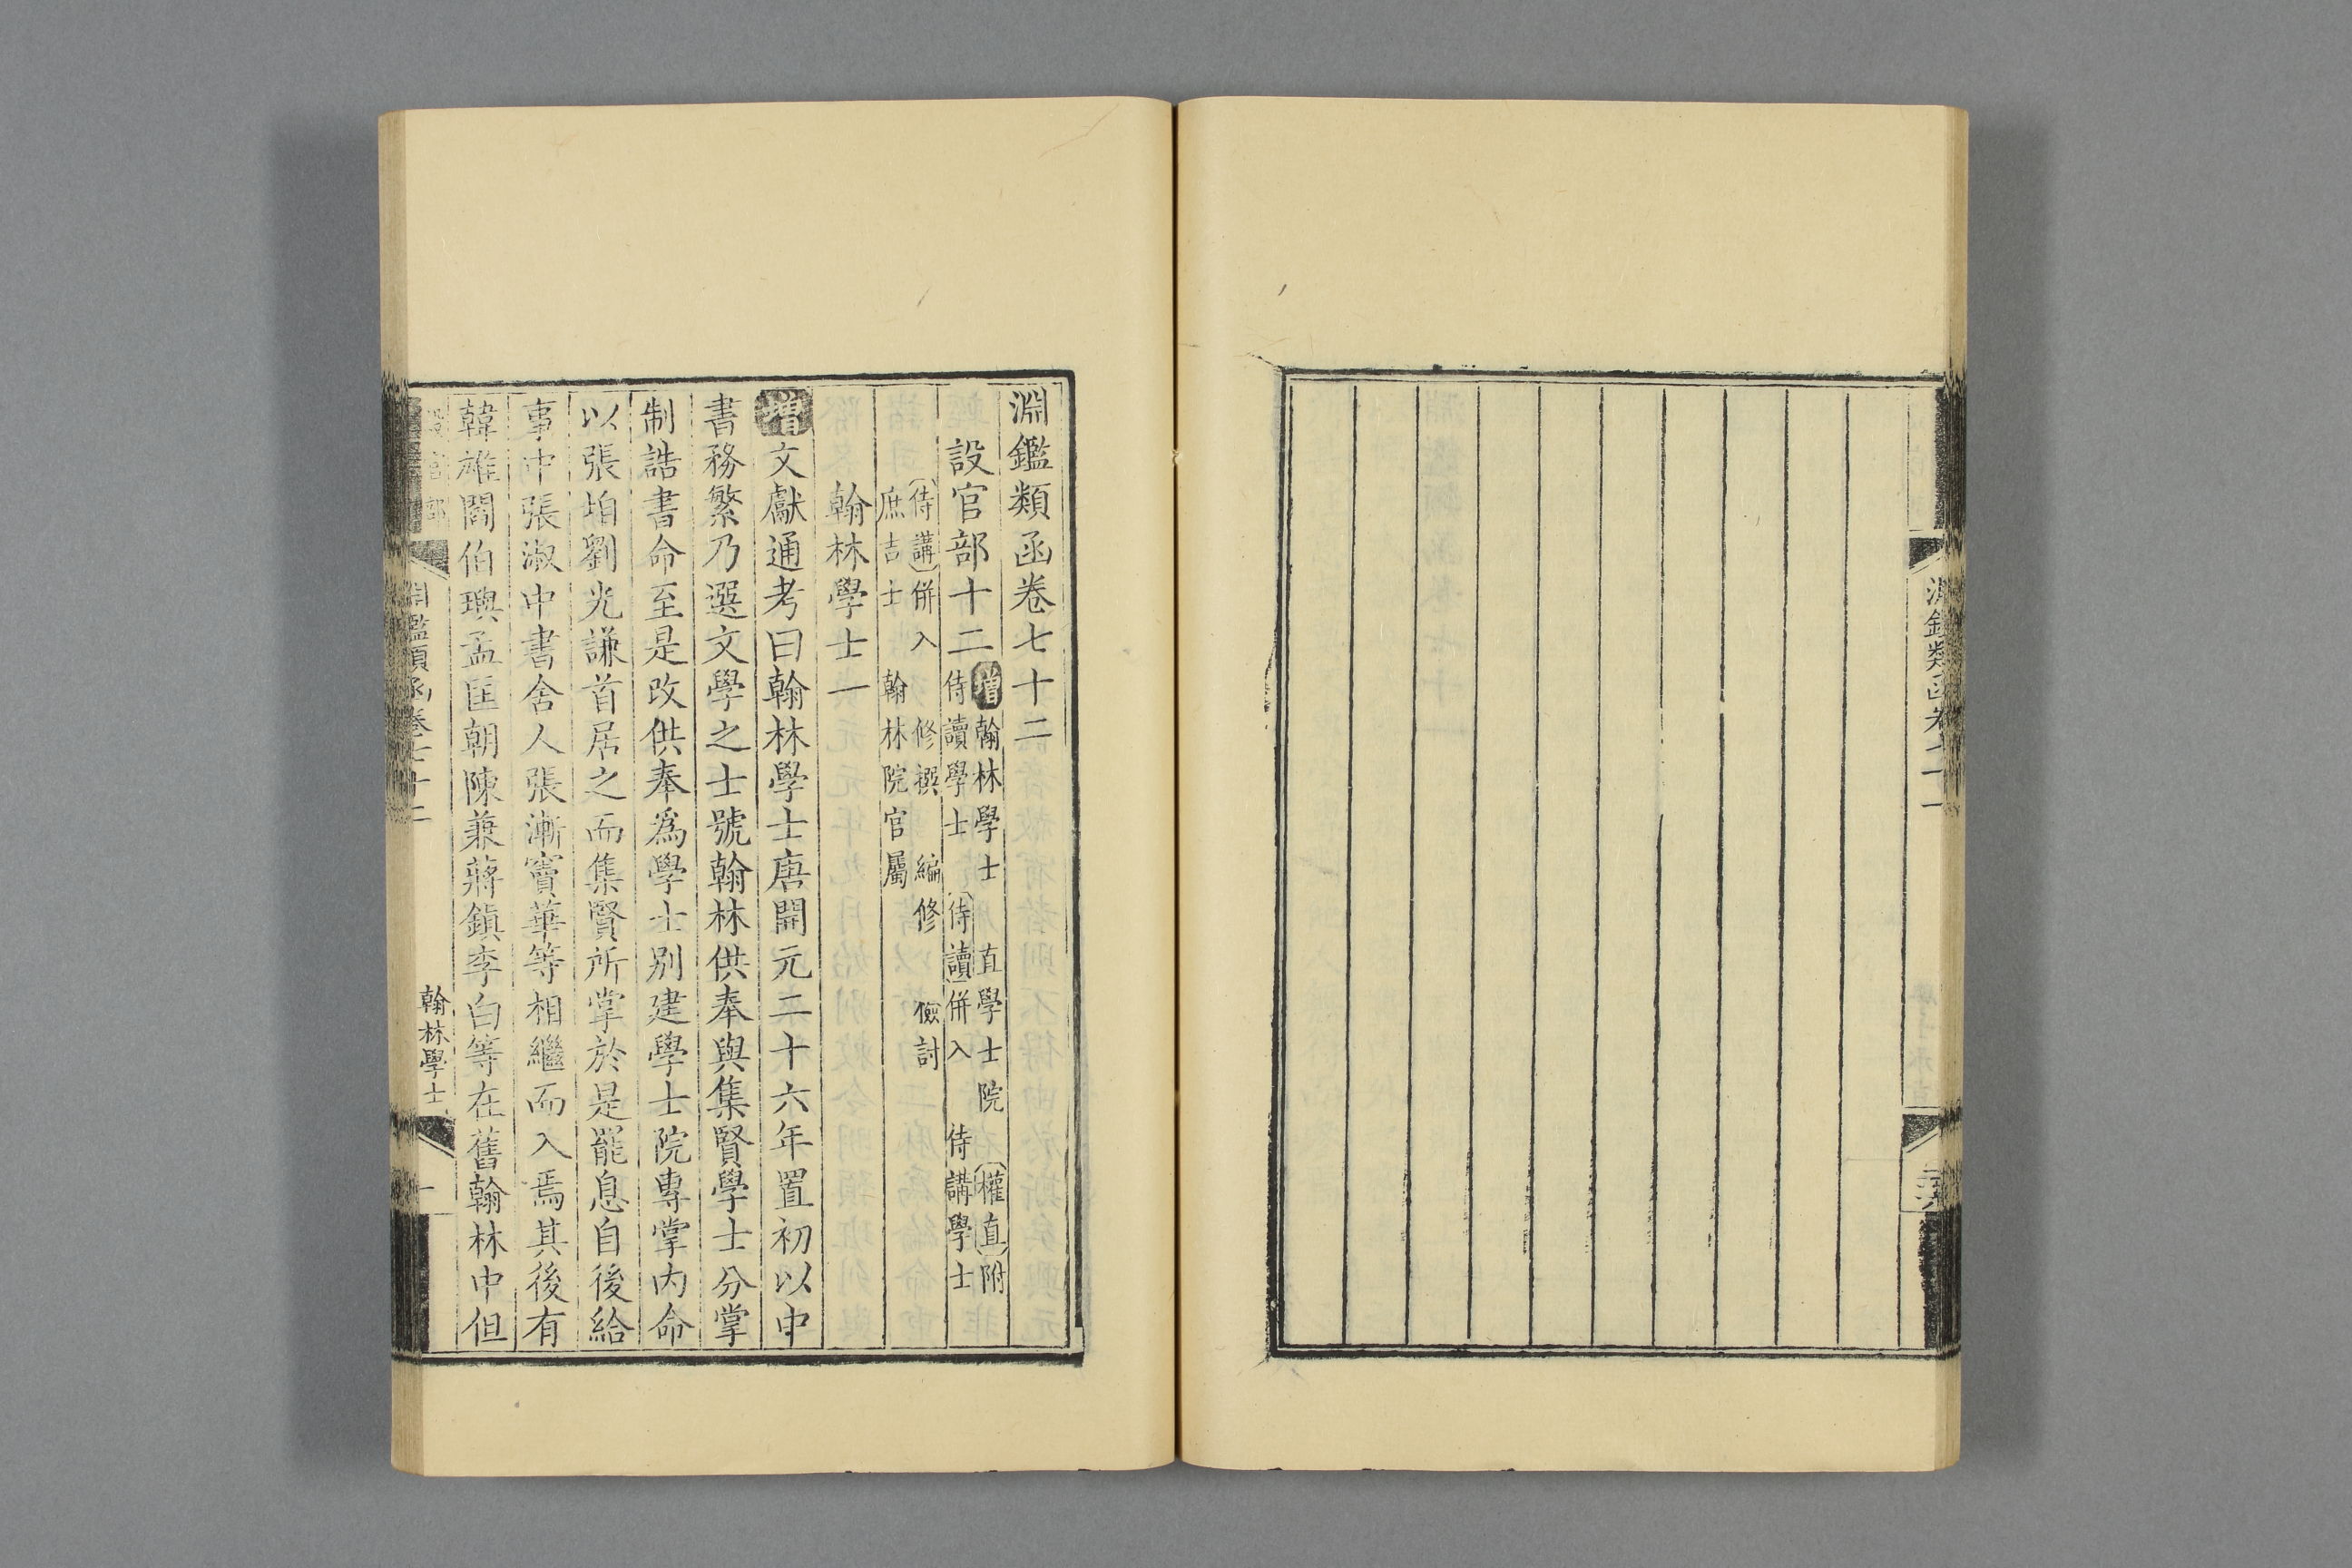 淵鑑類函卷七十一
二十六
淵鑑類函卷七十二
設官部十二
增翰林學士 直學士院 (權直)附
侍讀學士 (侍讀)併入 侍講學士
(侍講)併入 修撰 編修 檢討
庶吉士 翰林院官屬
翰林學士一
增文獻通考曰翰林學士唐開元二十六年置初以中
書務繁乃選文學之士號翰林供奉與集賢學士分掌
制誥書命至是改供奉爲學士別建學士院專掌內命
以張垍劉光謙首居之而集賢所掌於是罷息自後給
事中張淑中書舍人張漸竇華等相繼而入焉其後有
韓雄閻伯璵孟匡朝陳兼蔣鎮李白等在舊翰林中但
淵鑑類函卷七十二
設官部
翰林學士一
一